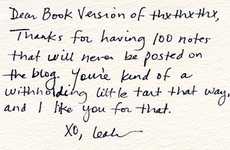 Dear Book Version of thxthxthx,
Thanks for having 100 notes
that will never be posted on
the blog. You're kind of a
withholding little tart that way,
and I like you for that.
XO, Leah